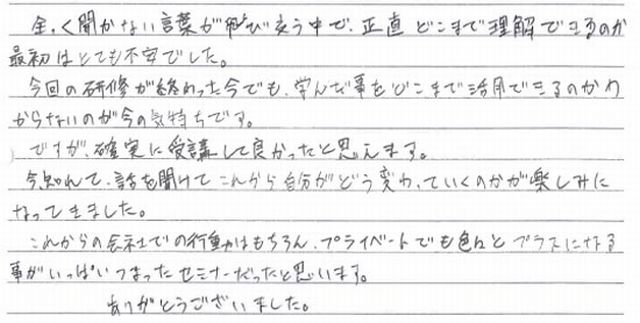 全く聞かない言葉が飛び交う中で、正直どこまで理解できるのか
最初はとても不安でした。
今回の研修が終わった今でも、学んだ事をどこまで活用できるのかわ
からないのが今の気持ちです。
ですが、確実に受講して良かったと思えます。
今、知れて、話を聞けてこれから自分がどう変わっていくのかが楽しみに
なってきました。
これからの会社での行動はもちろん、プライベートでも色々とプラスになる
事がいっぱいつまったセミナーだったと思います。
ありがとうございました。